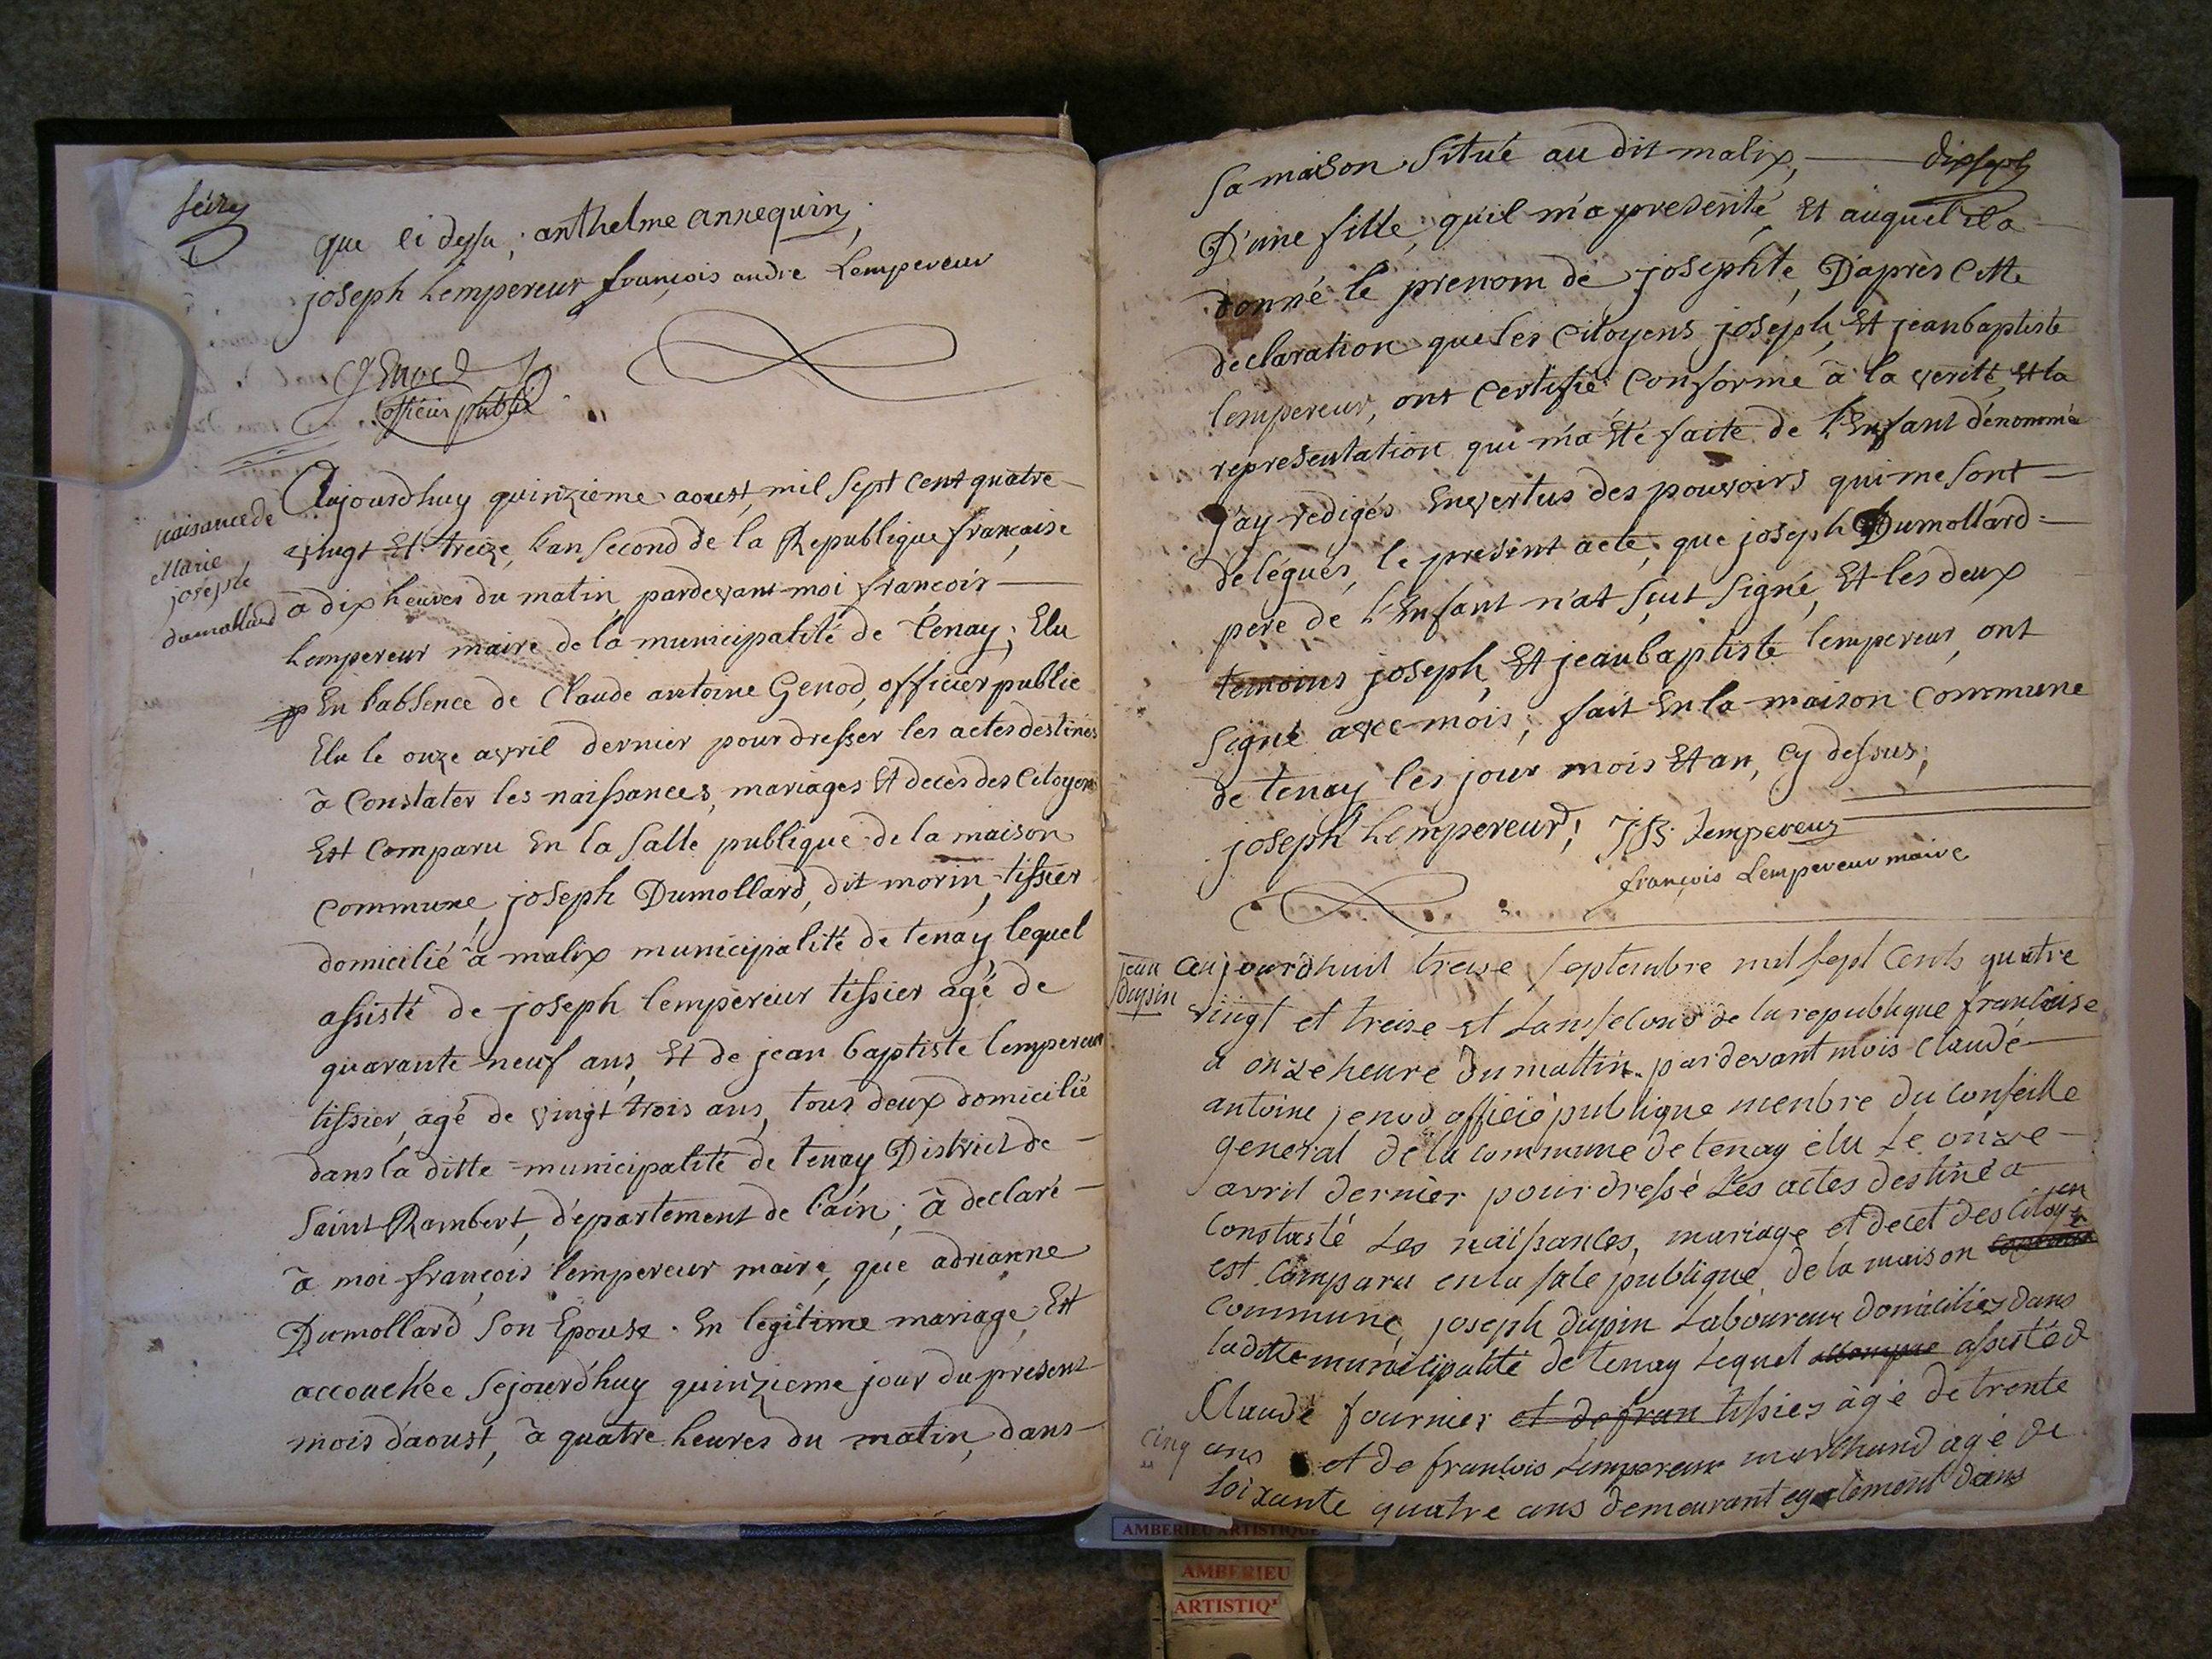 seize
que ci dessu; anthelme annequin,
joseph Lempereur françois andre Lempereur
officier public
naisance de
Marie
josephte
dumollard
Aujourdhuy quinzieme aoust, mil sept cent quatre
vingt Et treize, l'an second de la Republique française
à dix heures du matin, pardevant moi francois
Lempereur maire de la municipalité de tenay; Elu
En l'absence de Claude antoine Genod, officier public
Elu le onze avril dernier pour dresser les actes destinés
à Constater les naissances, mariages Et decès des Citoyens
Est Comparu En la salle publique de la maison
commune, joseph Dumollard, dit morin, tissier
domicilié à malix municipalité de tenay, lequel
assisté de joseph lempereur tissier agé de
quarante neuf ans, Et de jean baptiste lempereur
tissier, agé de vingt trois ans, tous deux domicilié
dans la ditte municipalité de tenay District de
Saint Rambert, département de l'ain; à declaré
à moi françois lempereur maire, que adrianne
Dumollard son Epouse. En legitime mariage, Est
accouchée sejourd'huy quinzieme jour du present
mois d'aoust, à quatre heures du matin, dans
dixsept
sa maison situé au dit malix,
D'une fille, qu'il m'a presenté, Et auquel il a
donné le prenom de josephte, D'après Cette
declaration que les Citoyens joseph, Et jean baptiste
lempereur, ont Certifié Conforme à la verité, Et la
representation qui m'a Eté faite de l'Enfant dénommé
j'ay redigés Envertus des pouvoirs qui me sont
delégués, le present acte, que joseph Dumollard
pere de l'Enfant n'at sçut signé, Et les deux
temoins joseph, Et jean baptiste lempereur, ont
signé avec mois; fait En la maison commune
de tenay les jour mois Et an, cy dessus;
joseph Lempereur; J:B: Lempereur
françois Lempereur maire
jean
dupin
aujourdhuit treise septembre mil sept Cents quatre
vingt et treise et lan second de la republique francaise
a onze heure du mattin. pardevant mois Claude
antoine jenod officié publique menbre du Conseille
general de la commune de tenay élu Le onze
avril dernier pour dressé Les actes destiné a
Constasté Les naissances, mariage et decet des Citoyen
est Comparu en la sale publique de la maison
Commune, joseph dupin Laboureur domicilies dans
la ditte municipalité de tenay Lequel assisté d
Claude fournier et de fran tissier àgé de trente
cinq ans et de francois Lempereur marchand agé de
soixante quatre ans demeurant egalement dans
AMBERIEU ARTISTIQUE
AMBERIEU
ARTISTIQ